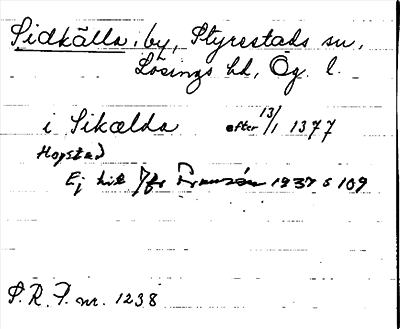 Sidkälla, by, Styrestads sn,
Lösings hd, Ög. l.
i Sikælda efter 13/1 1377
Hopstad
Ej hit Jfr Franzén 1937 s 109
S.R.P. nr. 1238